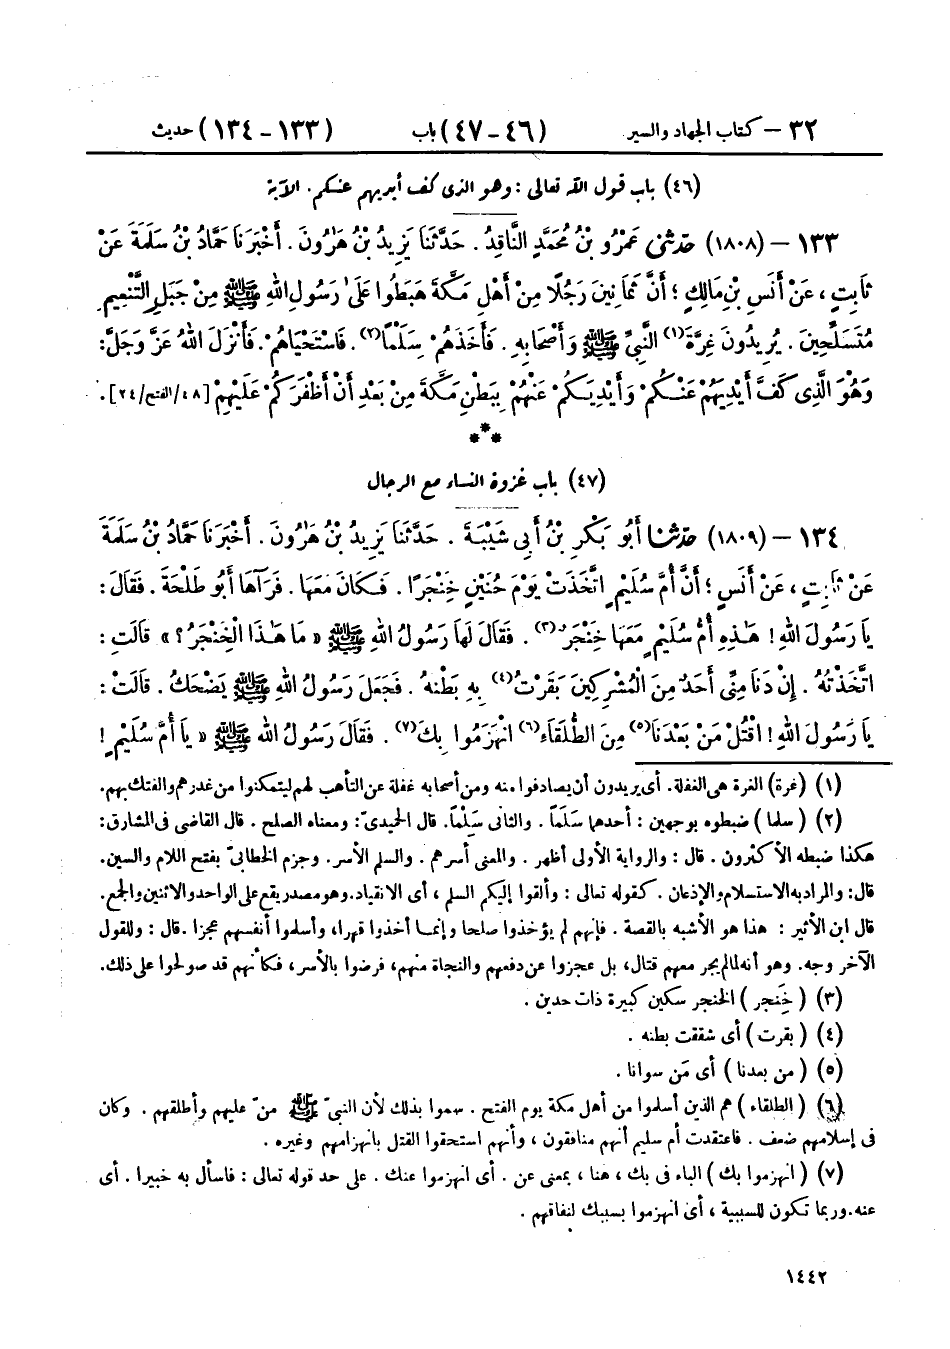 ٣٢ – كتاب الجهاد والسير (٤٦ – ٤٧) باب (١٣٣ – ١٣٤) حديث
(٤٦) باب قول الله تعالى : وهو الذى كف أيديهم عنكم . الآية
١٣٣ – (١٨٠٨) حدثنى عَمْرُو بْنُ مُحَمَّدٍ النَّاقِدُ . حَدَّثَنَا يَزِيدُ بْنُ هَٰرُونَ . أَخْبَرَنَا حَمَّادُ بْنُ سَلَمَةَ عَنْ
ثَابِتٍ ، عَنْ أَنَسِ بْنِ مَالِكٍ ؛ أَنَّ ثَمَانِينَ رَجُلًا مِنْ أَهْلِ مَكَّةَ هَبَطُوا عَلَىٰ رَسُولِ اللهِ ﷺ مِنْ جَبَلِ التَّنْعِيمِ
مُتَسَلِّحِينَ . يُرِيدُونَ غِرَّةَ (١) النَّبِيِّ ﷺ وَأَصْحَابِهِ . فَأَخَذَهُمْ سَلْمًا (٢) . فَاسْتَحْيَاهُمْ . فَأَنْزَلَ اللهُ عَزَّ وَجَلَّ :
وَهُوَ الَّذِى كَفَّ أَيْدِيَهُمْ عَنْكُمْ وَأَيْدِيَكُمْ عَنْهُمْ بِبَطْنِ مَكَّةَ مِنْ بَعْدِ أَنْ أَظْفَرَكُمْ عَلَيْهِمْ [٤٨/الفتح/٢٤] .
***
(٤٧) باب غزوة النساء مع الرجال
١٣٤ – (١٨٠٩) حدثنا أَبُو بَكْرِ بْنُ أَبِى شَيْبَةَ . حَدَّثَنَا يَزِيدُ بْنُ هَٰرُونَ . أَخْبَرَنَا حَمَّادُ بْنُ سَلَمَةَ
عَنْ ثَابِتٍ ، عَنْ أَنَسٍ ؛ أَنَّ أُمَّ سُلَيْمٍ اتَّخَذَتْ يَوْمَ حُنَيْنٍ خِنْجَرًا . فَكَانَ مَعَهَا . فَرَآهَا أَبُو طَلْحَةَ . فَقَالَ :
يَا رَسُولَ اللهِ ! هَٰذِهِ أُمُّ سُلَيْمٍ مَعَهَا خِنْجَرٌ (٣) . فَقَالَ لَهَا رَسُولُ اللهِ ﷺ « مَا هَٰذَا الْخِنْجَرُ ؟ » قَالَتِ :
اتَّخَذْتُهُ . إِنْ دَنَا مِنِّى أَحَدٌ مِنَ الْمُشْرِكِينَ بَقَرْتُ (٤) بِهِ بَطْنَهُ . فَجَعَلَ رَسُولُ اللهِ ﷺ يَضْحَكُ . قَالَتْ :
يَا رَسُولَ اللهِ ! اقْتُلْ مَنْ بَعْدَنَا (٥) مِنَ الطُّلَقَاءِ (٦) انْهَزَمُوا بِكَ (٧) . فَقَالَ رَسُولُ اللهِ ﷺ « يَا أُمَّ سُلَيْمٍ !
(١) (غرة) الغرة هى الغفلة. أى يريدون أن يصادفوا منه ومن أصحابه غفلة عن التأهب لهم ليتمكنوا من غدرهم والفتك بهم.
(٢) (سلما) ضبطوه بوجهين : أحدهما سَلَماً . والثانى سَلْماً. قال الحميدىّ : ومعناه الصلح . قال القاضى فى المشارق :
هكذا ضبطه الأكثرون . قال : والرواية الأولى أظهر . والمعنى أسرهم . والسلم الأسر. وجزم الخطابىّ بفتح اللام والسين.
قال : والمراد به الاستسلام والإذعان . كقوله تعالى : وألقوا إليكم السلم ، أى الانقياد. وهو مصدر يقع على الواحد والاثنين والجمع.
قال ابن الأثير : هذا هو الأشبه بالقصة . فإنهم لم يؤخذوا صلحا وإنما أخذوا قهرا، وأسلموا أنفسهم عجزا . قال : وللقول
الآخر وجه. وهو أنه لما لم يجر معهم قتال، بل عجزوا عن دفعهم والنجاة منهم، فرضوا بالأسر، فكأنهم قد صولحوا على ذلك.
(٣) (خِنجر) الخنجر سكين كبيرة ذات حدين .
(٤) (بقرت) أى شققت بطنه .
(٥) (من بعدنا) أى مَن سوانا .
(٦) (الطلقاء) هم الذين أسلموا من أهل مكة يوم الفتح . سموا بذلك لأن النبىّ ﷺ منّ عليهم وأطلقهم . وكان
فى إسلامهم ضعف . فاعتقدت أم سليم أنهم منافقون ، وأنهم استحقوا القتل بانهزامهم وغيره .
(٧) (انهزموا بك) الباء فى بك ، هنا ، بمعنى عن . أى انهزموا عنك . على حد قوله تعالى : فاسأل به خبيرا . أى
عنه. وربما تكون للسببية ، أى انهزموا بسببك لنفاقهم .
١٤٤٢